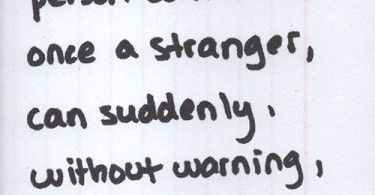 once a stranger,
can suddenly,
without warning,